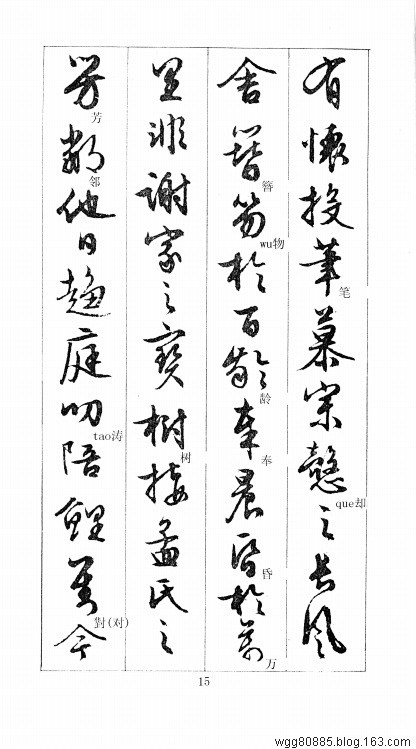 有懷投筆慕宗慤之長風
笔
que却
舍簪笏於百齡奉晨昏於萬
簪
wu物
龄
奉
昏
万
里非謝家之寶樹接孟氏之
树
芳鄰他日趨庭叨陪鯉對今
芳
邻
tao涛
對(对)
15
wgg80885.blog.163.com